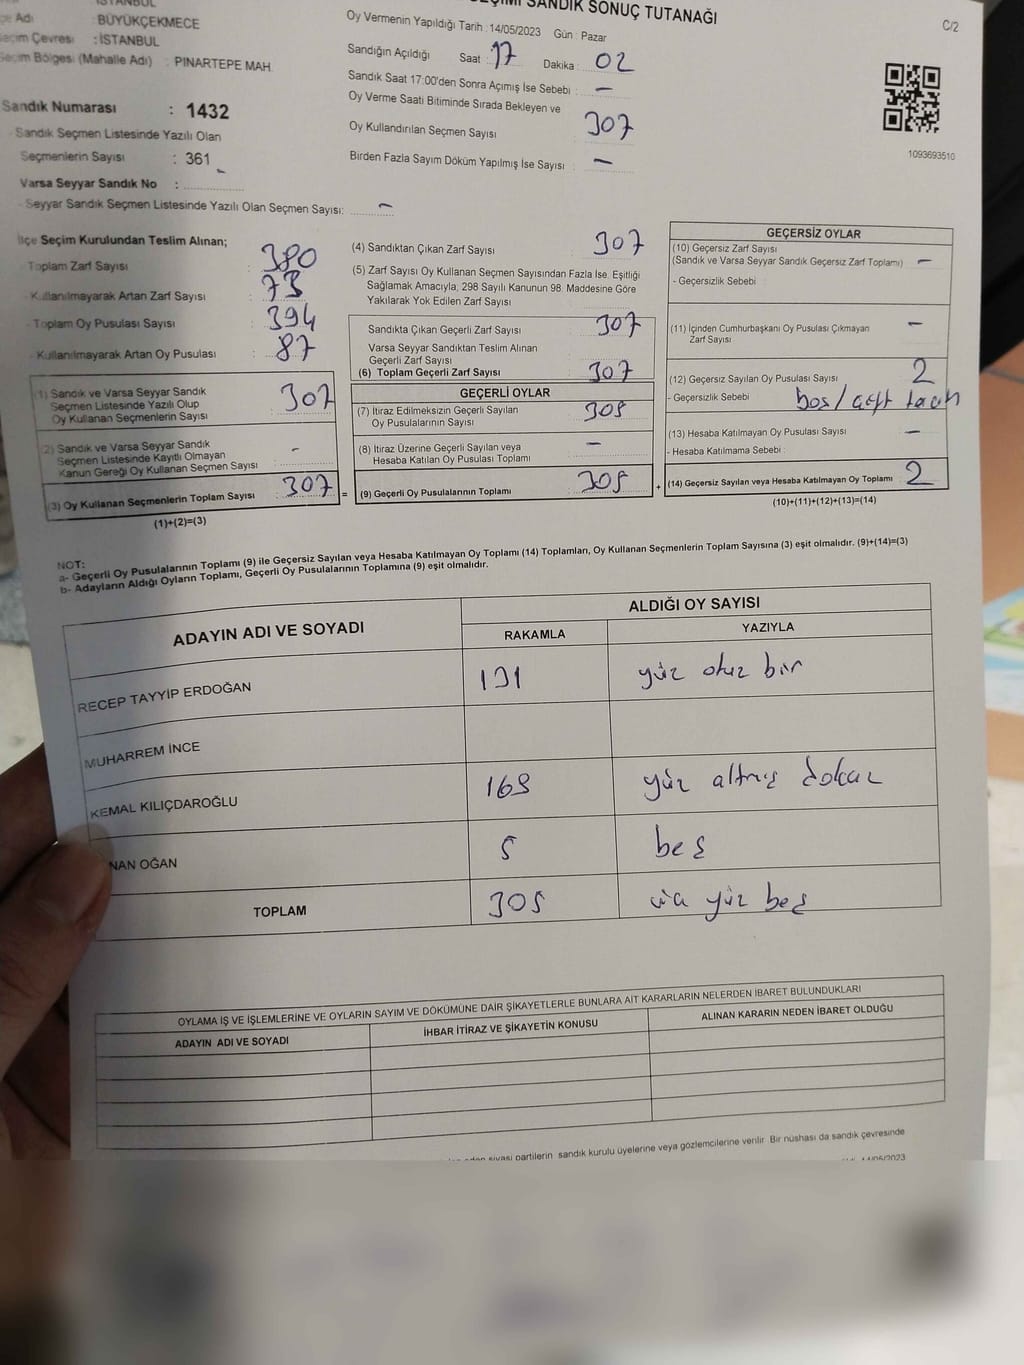 İSTANBUL
Adı : BÜYÜKÇEKMECE
Seçim Çevresi : İSTANBUL
Seçim Bölgesi (Mahalle Adı) : PINARTEPE MAH.
Sandık Numarası : 1432
- Sandık Seçmen Listesinde Yazılı Olan
Seçmenlerin Sayısı : 361
Varsa Seyyar Sandık No : -
- Seyyar Sandık Seçmen Listesinde Yazılı Olan Seçmen Sayısı: -
SANDIK SONUÇ TUTANAĞI
C/2
Oy Vermenin Yapıldığı Tarih : 14/05/2023 Gün : Pazar
Sandığın Açıldığı Saat : 17 Dakika : 02
Sandık Saat 17:00'den Sonra Açımış İse Sebebi : -
Oy Verme Saati Bitiminde Sırada Bekleyen ve
Oy Kullandırılan Seçmen Sayısı 307
Birden Fazla Sayım Döküm Yapılmış İse Sayısı : -
1093693510
İlçe Seçim Kurulundan Teslim Alınan;
- Toplam Zarf Sayısı : 380
- Kullanılmayarak Artan Zarf Sayısı : 73
- Toplam Oy Pusulası Sayısı : 394
- Kullanılmayarak Artan Oy Pusulası : 87
(1) Sandık ve Varsa Seyyar Sandık
Seçmen Listesinde Yazılı Olup
Oy Kullanan Seçmenlerin Sayısı 307
(2) Sandık ve Varsa Seyyar Sandık
Seçmen Listesinde Kayıtlı Olmayan
Kanun Gereği Oy Kullanan Seçmen Sayısı -
(3) Oy Kullanan Seçmenlerin Toplam Sayısı 307 =
(1)+(2)=(3)
(4) Sandıktan Çıkan Zarf Sayısı : 307
(5) Zarf Sayısı Oy Kullanan Seçmen Sayısından Fazla İse, Eşitliği
Sağlamak Amacıyla; 298 Sayılı Kanunun 98. Maddesine Göre
Yakılarak Yok Edilen Zarf Sayısı
Sandıkta Çıkan Geçerli Zarf Sayısı 307
Varsa Seyyar Sandıktan Teslim Alınan
Geçerli Zarf Sayısı
(6) Toplam Geçerli Zarf Sayısı 307
GEÇERLİ OYLAR
(7) İtiraz Edilmeksizin Geçerli Sayılan
Oy Pusulalarının Sayısı 305
(8) İtiraz Üzerine Geçerli Sayılan veya
Hesaba Katılan Oy Pusulası Toplamı -
(9) Geçerli Oy Pusulalarının Toplamı 305 +
GEÇERSİZ OYLAR
(10) Geçersiz Zarf Sayısı
(Sandık ve Varsa Seyyar Sandık Geçersiz Zarf Toplamı) -
- Geçersizlik Sebebi :
(11) İçinden Cumhurbaşkanı Oy Pusulası Çıkmayan
Zarf Sayısı -
(12) Geçersiz Sayılan Oy Pusulası Sayısı 2
- Geçersizlik Sebebi : boş/çift tach
(13) Hesaba Katılmayan Oy Pusulası Sayısı -
- Hesaba Katılmama Sebebi :
(14) Geçersiz Sayılan veya Hesaba Katılmayan Oy Toplamı 2
(10)+(11)+(12)+(13)=(14)
NOT:
a- Geçerli Oy Pusulalarının Toplamı (9) ile Geçersiz Sayılan veya Hesaba Katılmayan Oy Toplamı (14) Toplamları, Oy Kullanan Seçmenlerin Toplam Sayısına (3) eşit olmalıdır. (9)+(14)=(3)
b- Adayların Aldığı Oyların Toplamı, Geçerli Oy Pusulalarının Toplamına (9) eşit olmalıdır.
ADAYIN ADI VE SOYADI
ALDIĞI OY SAYISI
RAKAMLA YAZIYLA
RECEP TAYYİP ERDOĞAN 131 yüz otuz bir
MUHARREM İNCE
KEMAL KILIÇDAROĞLU 169 yüz altmış dokuz
NAN OĞAN 5 beş
TOPLAM 305 üç yüz beş
OYLAMA İŞ VE İŞLEMLERİNE VE OYLARIN SAYIM VE DÖKÜMÜNE DAİR ŞİKAYETLERLE BUNLARA AİT KARARLARIN NELERDEN İBARET BULUNDUKLARI
ADAYIN ADI VE SOYADI İHBAR İTİRAZ VE ŞİKAYETİN KONUSU ALINAN KARARIN NEDEN İBARET OLDUĞU
siyasi partilerin sandık kurulu üyelerine veya gözlemcilerine verilir. Bir nüshası da sandık çevresinde
14/05/2023